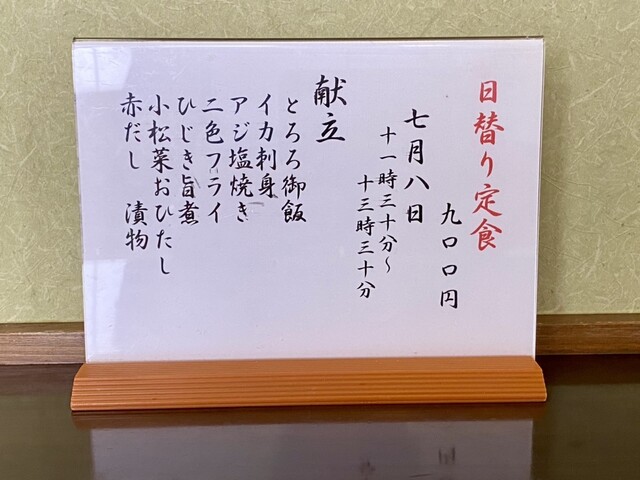 日替り定食
九〇〇円
七月八日
十一時三十分～
十三時三十分
献立
とろろ御飯
イカ刺身
アジ塩焼き
二色フライ
ひじき旨煮
小松菜おひたし
赤だし　漬物